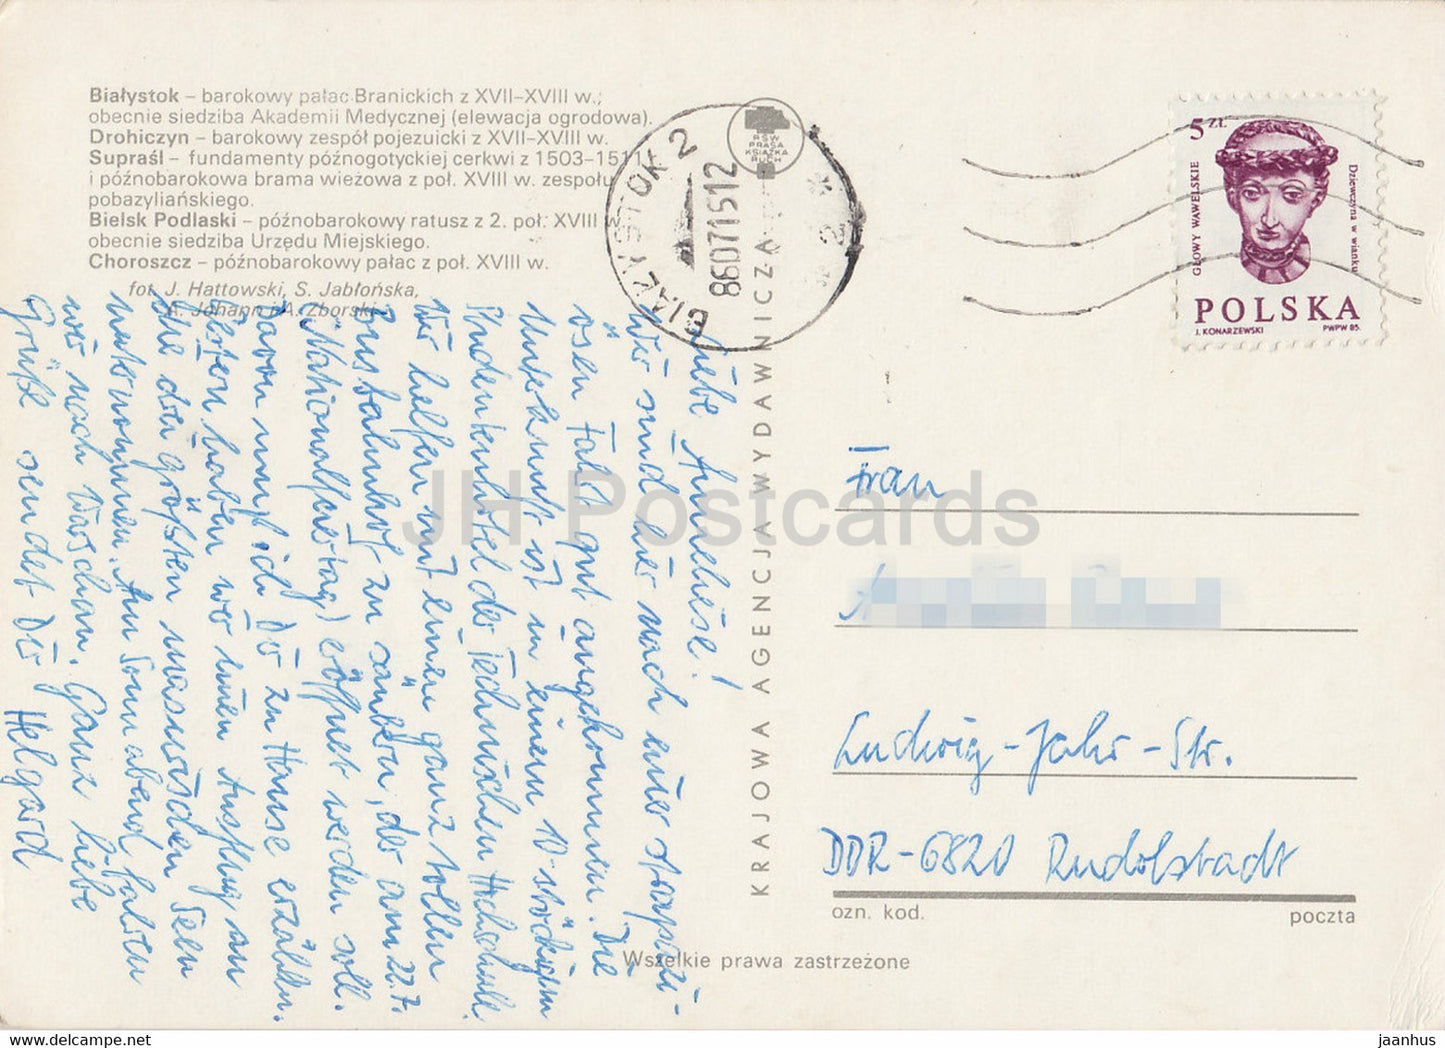 Białystok – barokowy pałac Branickich z XVII–XVIII w.;
obecnie siedziba Akademii Medycznej (elewacja ogrodowa).
Drohiczyn – barokowy zespół pojezuicki z XVII–XVIII w.
Supraśl – fundamenty późnogotyckiej cerkwi z 1503–1511
i późnobarokowa brama wieżowa z poł. XVIII w. zespołu
pobazyliańskiego.
Bielsk Podlaski – późnobarokowy ratusz z 2. poł. XVIII
obecnie siedziba Urzędu Miejskiego.
Choroszcz – późnobarokowy pałac z poł. XVIII w.
fot. J. Hattowski, S. Jabłońska,
A. Johann i A. Zborski
Liebe Anneliese!
Wir sind hier nach einer strapazi-
ösen Fahrt gut angekommen. Die
Unterkunft ist in einem 10-stöckigen
Studentenhotel der Technischen Hochschule.
Wir helfen mit einen ganz tollen
Busbahnhof zu säubern, der am 22.7.
(Nationalfeiertag) eröffnet werden soll.
Davon muß ich Dir zu Hause erzählen.
Gestern haben wir einen Ausflug an
die drei größten masurischen Seen
unternommen. Am Sonnabend fahren
wir nach Warschau. Ganz liebe
Grüße sendet Dir Helgard
BIAŁYSTOK 2
860715 12
RSW
PRASA
KSIĄŻKA
RUCH
KRAJOWA AGENCJA WYDAWNICZA
5 ZŁ
GŁOWY WAWELSKIE
Dziewczyna w wianku
POLSKA
J. KONARZEWSKI PWPW 85.
Frau
Ludwig-Jahn-Str.
DDR-6820 Rudolstadt
ozn. kod. poczta
Wszelkie prawa zastrzeżone
JH Postcards
https://www.hippostcard.com jaanhus